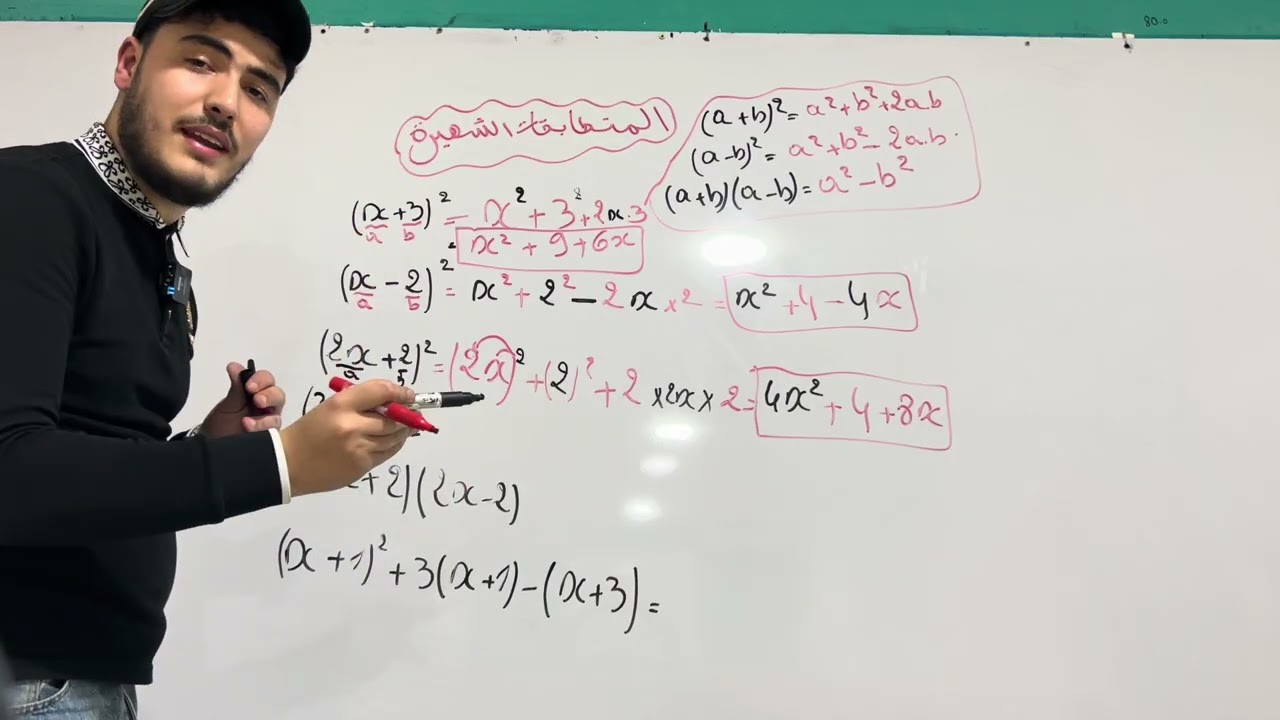 المتطابقات الشهيرة
(a+b)² = a²+b²+2ab
(a-b)² = a²+b²-2a.b.
(a+b)(a-b) = a²-b²
(x+3)² = x²+3²+2x.3
a b
x²+9+6x
(x-2)² = x²+2²-2x×2 = x²+4-4x
a b
(2x+2)² = (2x)²+(2)²+2×2x×2 = 4x²+4+8x
a b
+2)(2x-2)
(x+1)²+3(x+1)-(x+3) =
80.0